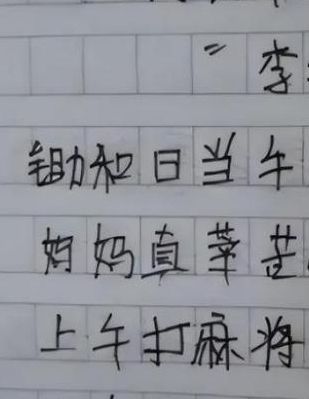 ” 李
锄和日当午
妈妈真辛苦
上午打麻将